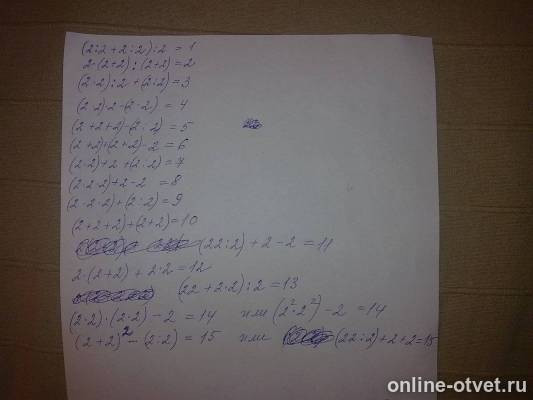 (2:2+2:2):2 = 1
2·(2+2):(2+2)=2
(2·2):2+(2:2)=3
(2·2)·2-(2·2) = 4
(2+2+2)-(2:2)=5
(2+2)+(2+2)-2=6
(2·2)+2+(2:2)=7
(2·2·2)+2-2 =8
(2·2·2)+(2:2)=9
(2+2+2)+(2+2)=10
(22:2)+2-2=11
2·(2+2)+2·2=12
(22+2·2):2=13
(2·2)·(2·2)-2 =14 или (2²·2²)-2 =14
(2+2)²-(2:2)=15 или (22:2)+2+2=15
online-otvet.ru